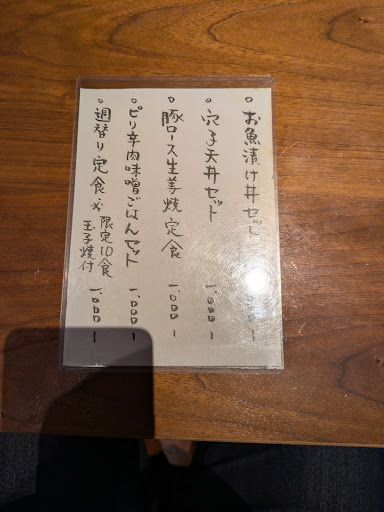 ○お魚漬け丼セット 1,000〜
○穴子天丼セット 1,000〜
○豚ロース生姜焼定食 1,000〜
○ピリ辛肉味噌ごはんセット 1,000〜
○週替り定食 限定10食
玉子焼付 1,000〜